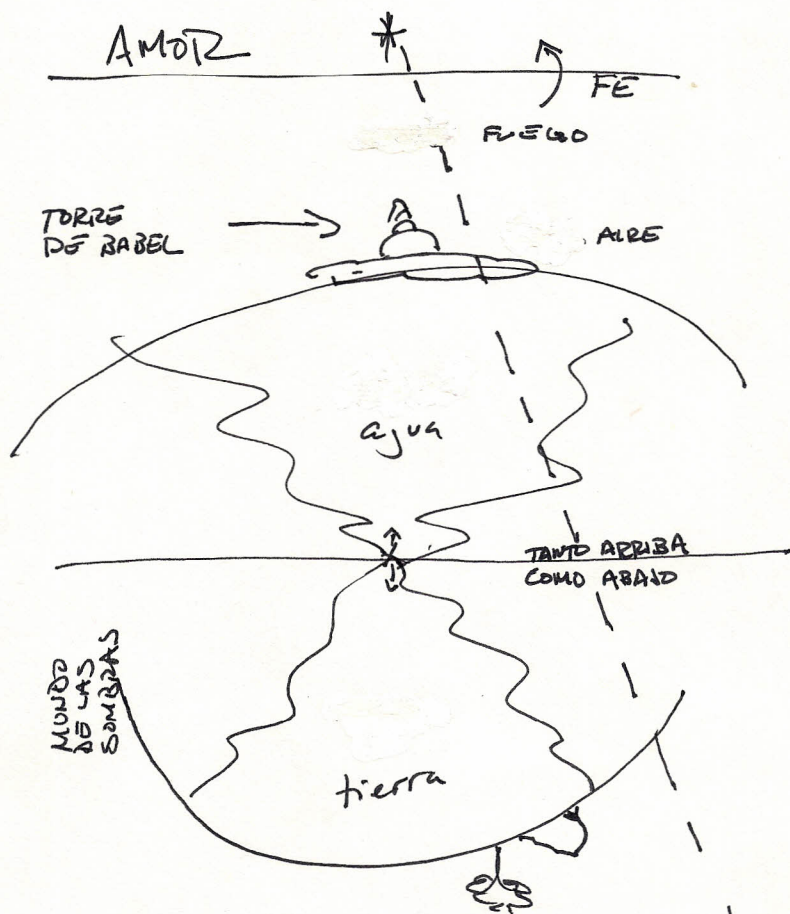 AMOR
FE
FUEGO
TORRE
DE BABEL
AIRE
agua
TANTO ARRIBA
COMO ABAJO
MUNDO
DE LAS
SOMBRAS
tierra